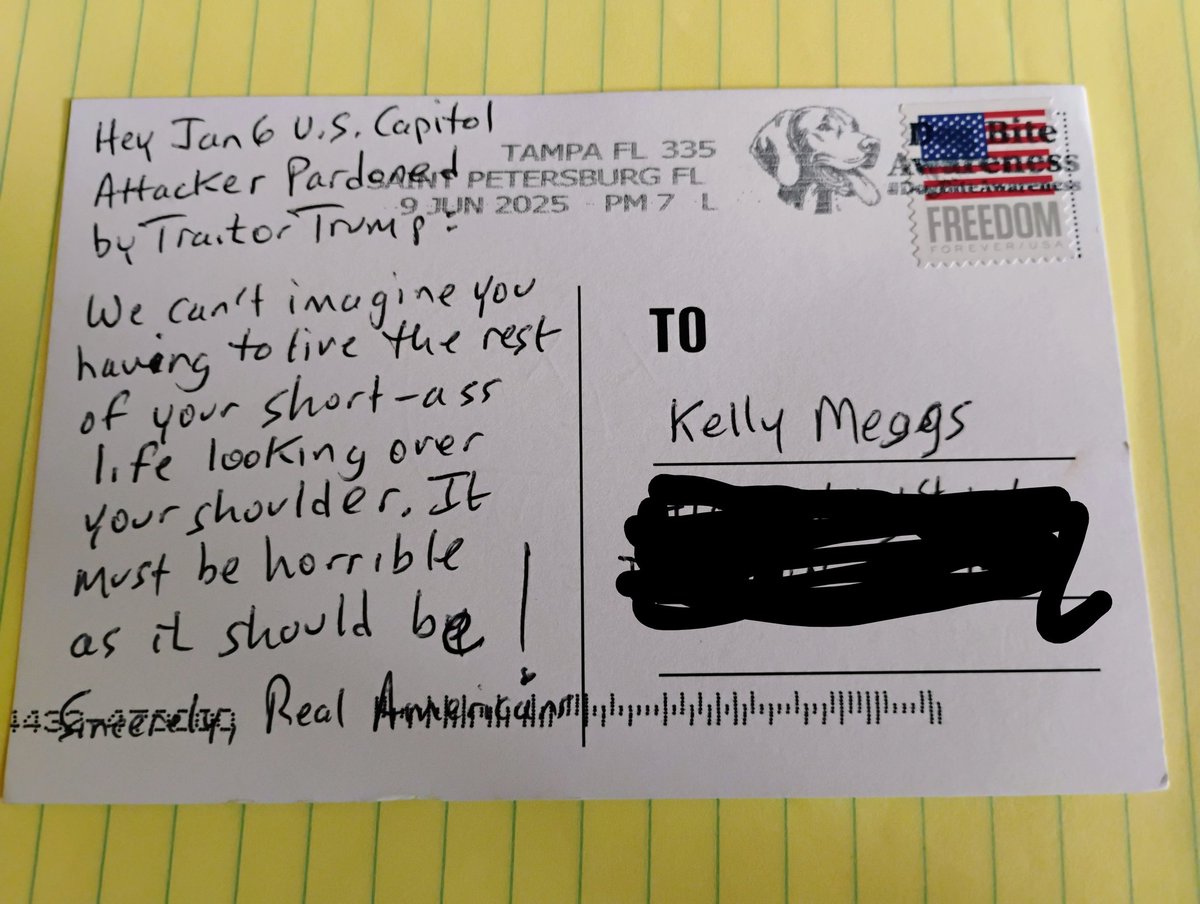 Hey Jan 6 U.S. Capitol
Attacker Pardoned
by Traitor Trump:
We can't imagine you
having to live the rest
of your short-ass
life looking over
your shoulder. It
must be horrible
as it should be!
Sincerely, Real Americans
TAMPA FL 335
SAINT PETERSBURG FL
9 JUN 2025 PM 7 L
Dog Bite
Awareness
#DogBiteAwareness
FREEDOM
FOREVER/USA
TO
Kelly Meggs